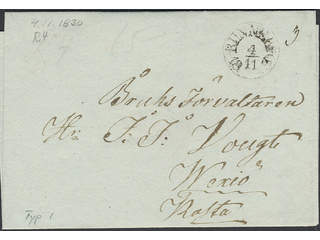 4.11.1830
4
11
3
Bruks Förvaltaren
Hr J. J. Vougt
Wexiö
Kosta
Typ 1